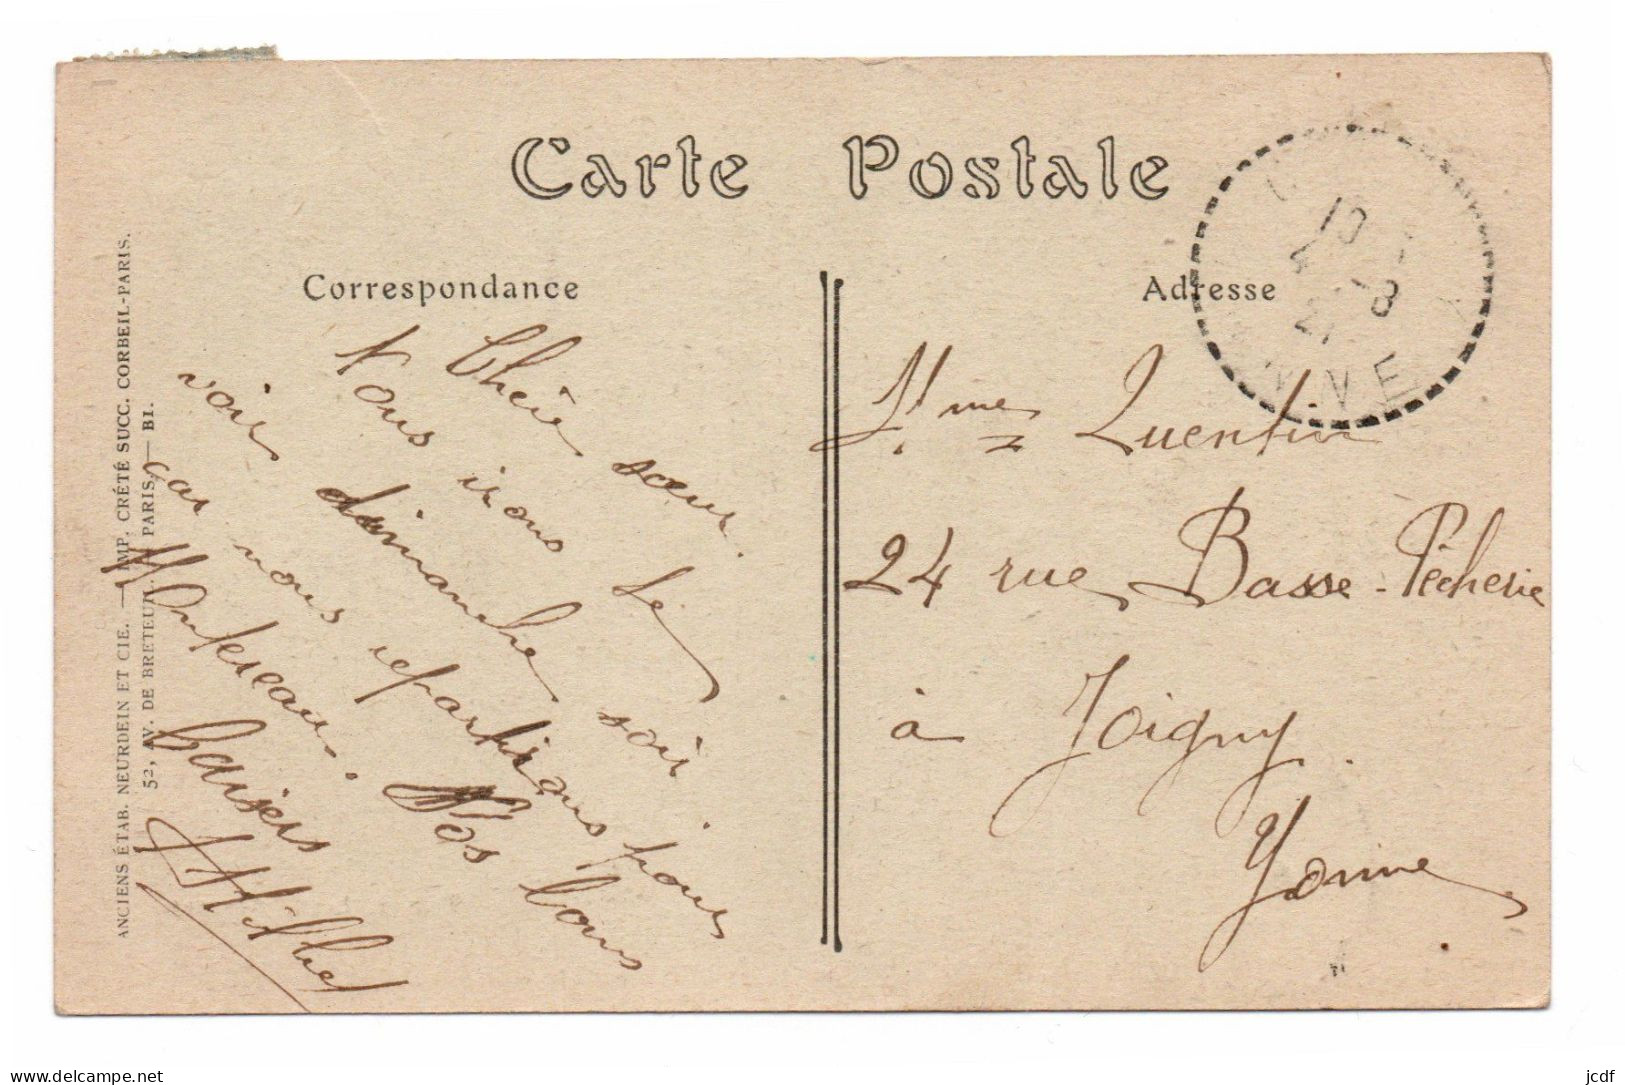 Carte Postale
Correspondance
Adresse
10
4 - 8
21
NNE
Chère sœur.
Nous irons te
voir dimanche soir
car nous repartirons pour
Montereau. Nos bons
baisers
Mme Quentin
24 rue Basse-Pêcherie
à Joigny.
Yonne
ANCIENS ÉTAB. NEURDEIN ET CIE. — IMP. CRÉTÉ SUCC. CORBEIL-PARIS.
52, AV. DE BRETEUIL. PARIS — BI.
www.delcampe.net
jcdf